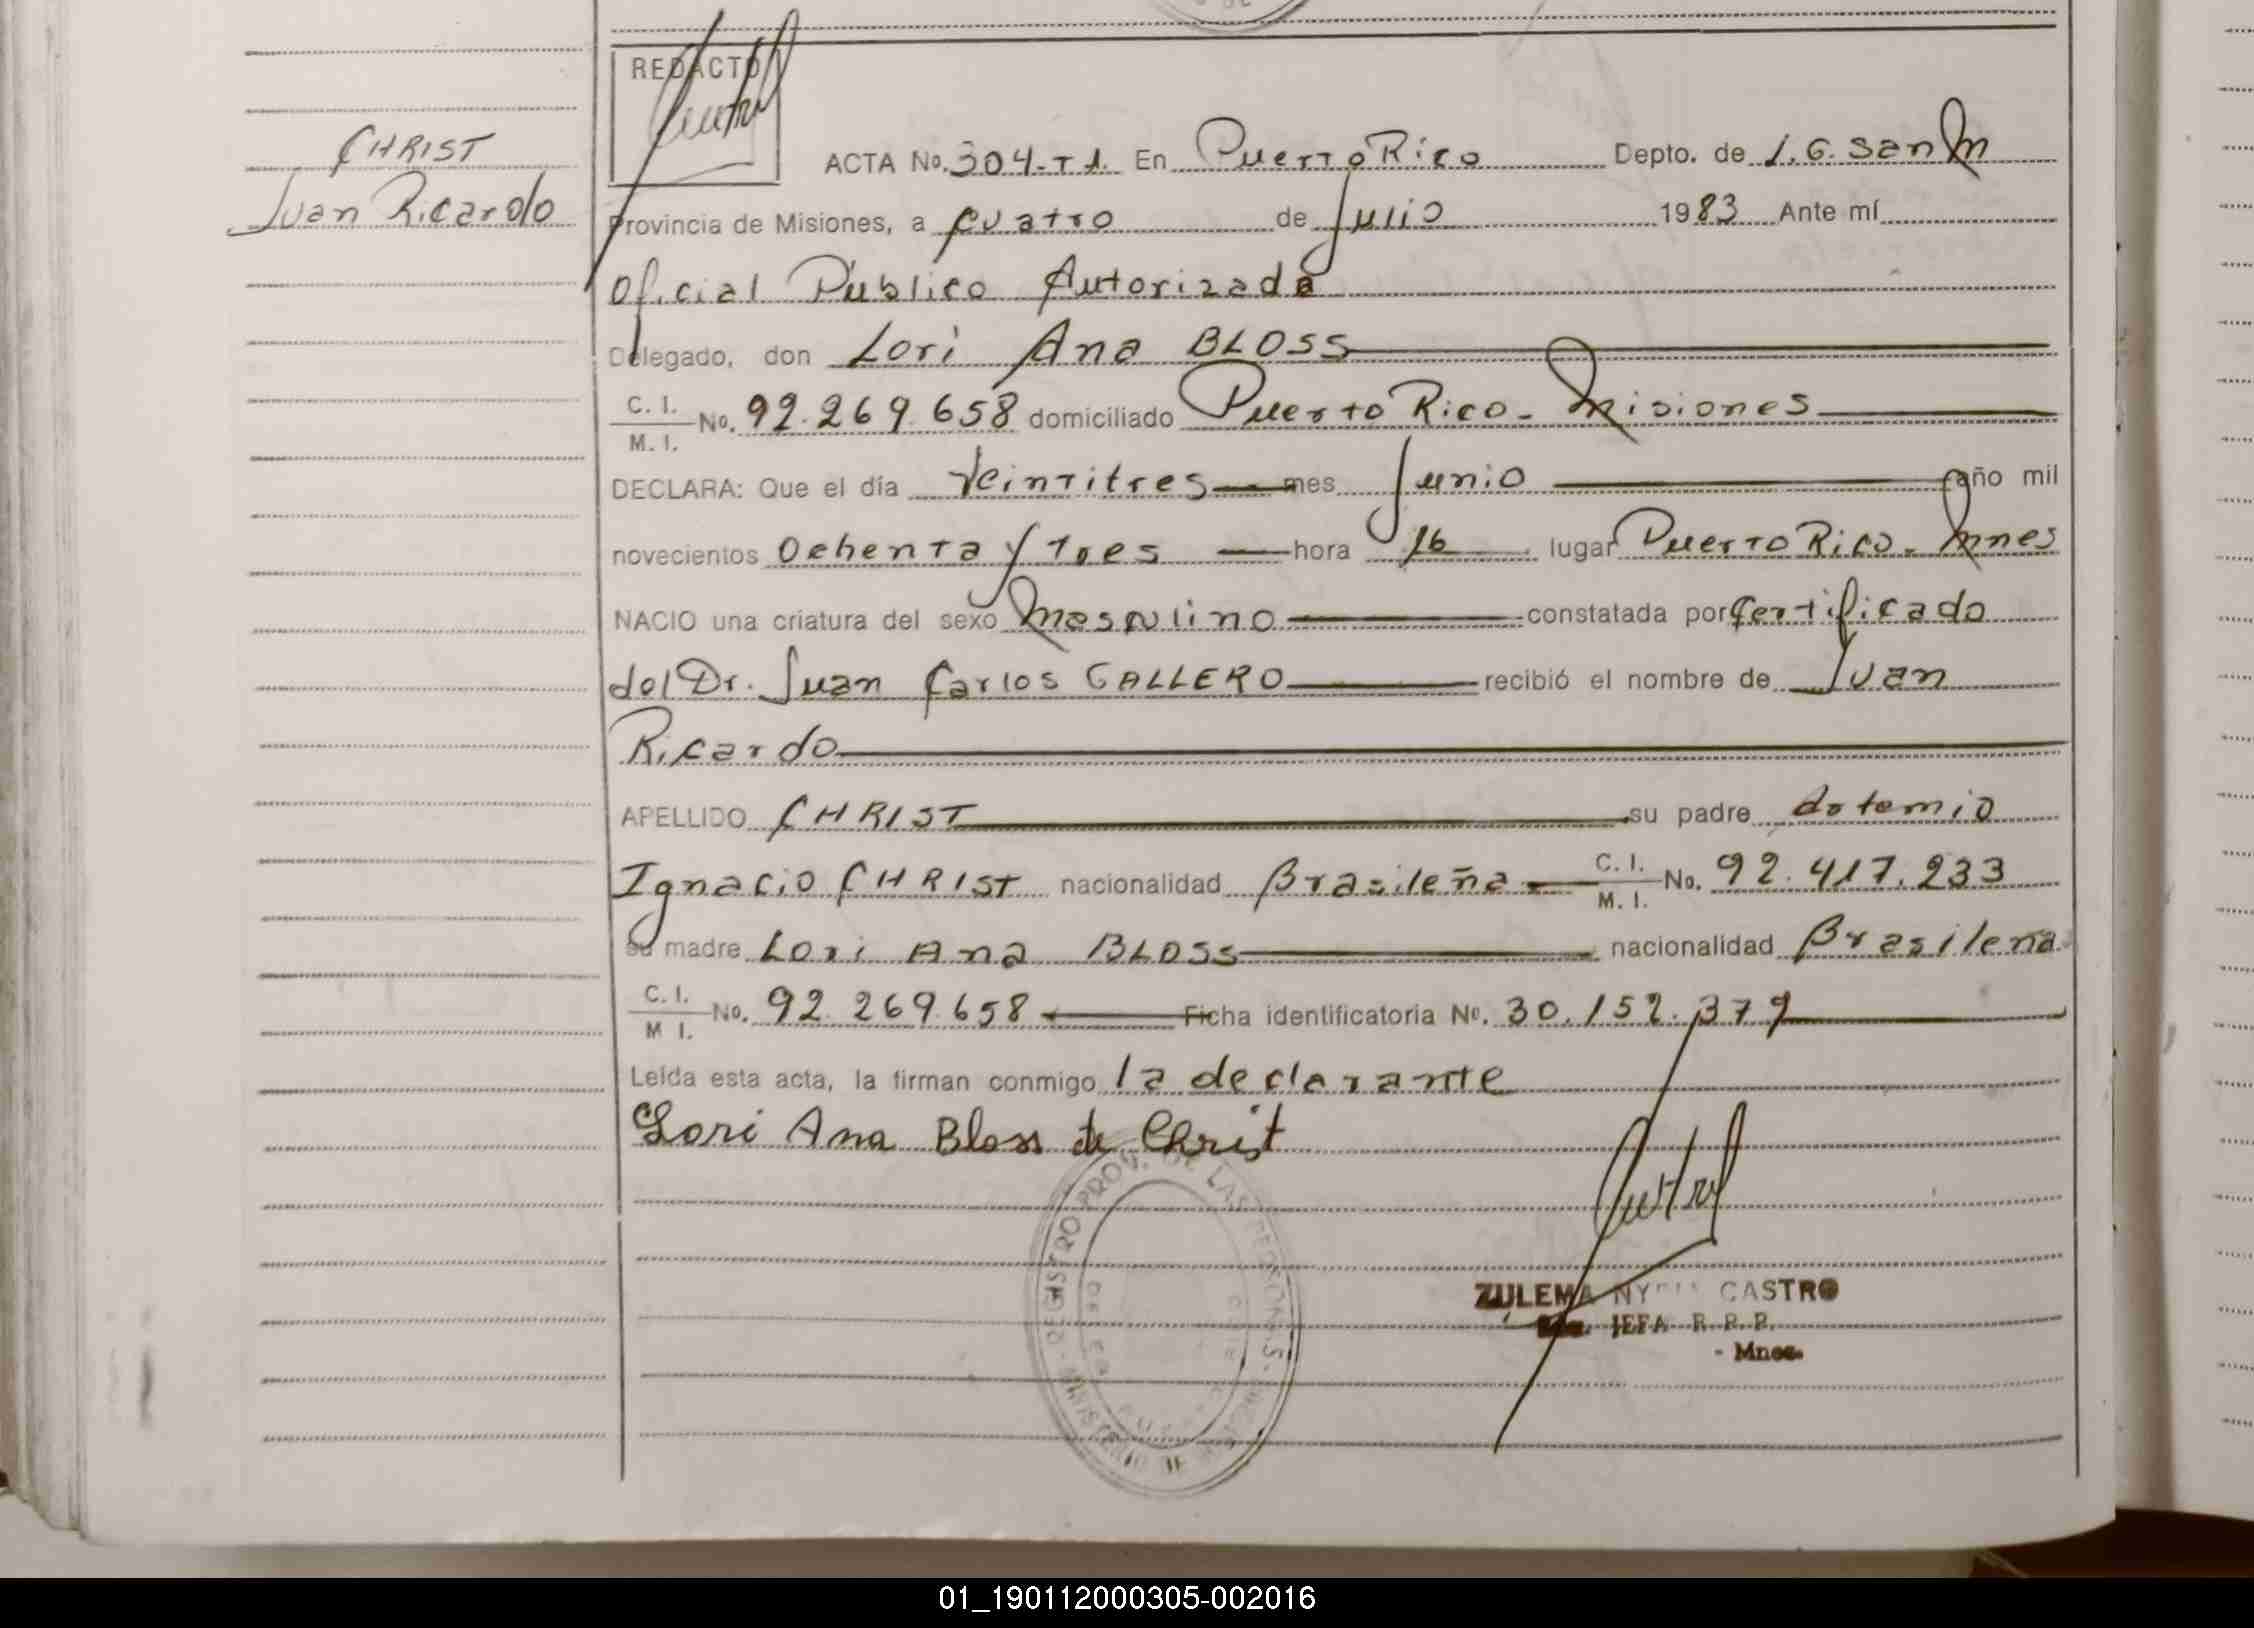 REDACTO
CHRIST
Juan Ricardo
ACTA No. 304-T1. En Puerto Rico Depto. de L.G. San M
Provincia de Misiones, a cuatro de Julio 1983 Ante mí
Oficial Público Autorizada
Delegado, don Lori Ana BLOSS
C. I. M. I. No. 92.269.658 domiciliado Puerto Rico - Misiones
DECLARA: Que el día Veintitres mes Junio año mil
novecientos Ochenta y Tres hora 16 lugar Puerto Rico - Mnes
NACIO una criatura del sexo Masculino constatada por Certificado
del Dr. Juan Carlos GALLERO recibió el nombre de Juan
Ricardo
APELLIDO CHRIST su padre Artemio
Ignacio CHRIST nacionalidad Brasileña C. I. M. I. No. 92.417.233
su madre Lori Ana BLOSS nacionalidad Brasileña
C. I. M I. No. 92.269.658 Ficha identificatoria No. 30.152.379
Leída esta acta, la firman conmigo la declarante
Lori Ana Bloss de Christ
REGISTRO PROV. DE LAS PERSONAS - MINISTERIO DE
ZULEMA CASTRO
JEFA R. P. P.
- Mnes.
01_190112000305-002016